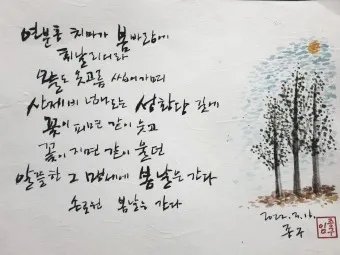 연분홍 치마가 봄바람에
휘날리더라
오늘도 옷고름 씹어가며
산제비 넘나드는 성황당 길에
꽃이 피면 같이 웃고
꽃이 지면 같이 울던
알뜰한 그 맹세에 봄날은 간다
손로원 봄날은 간다
2022.3.16.